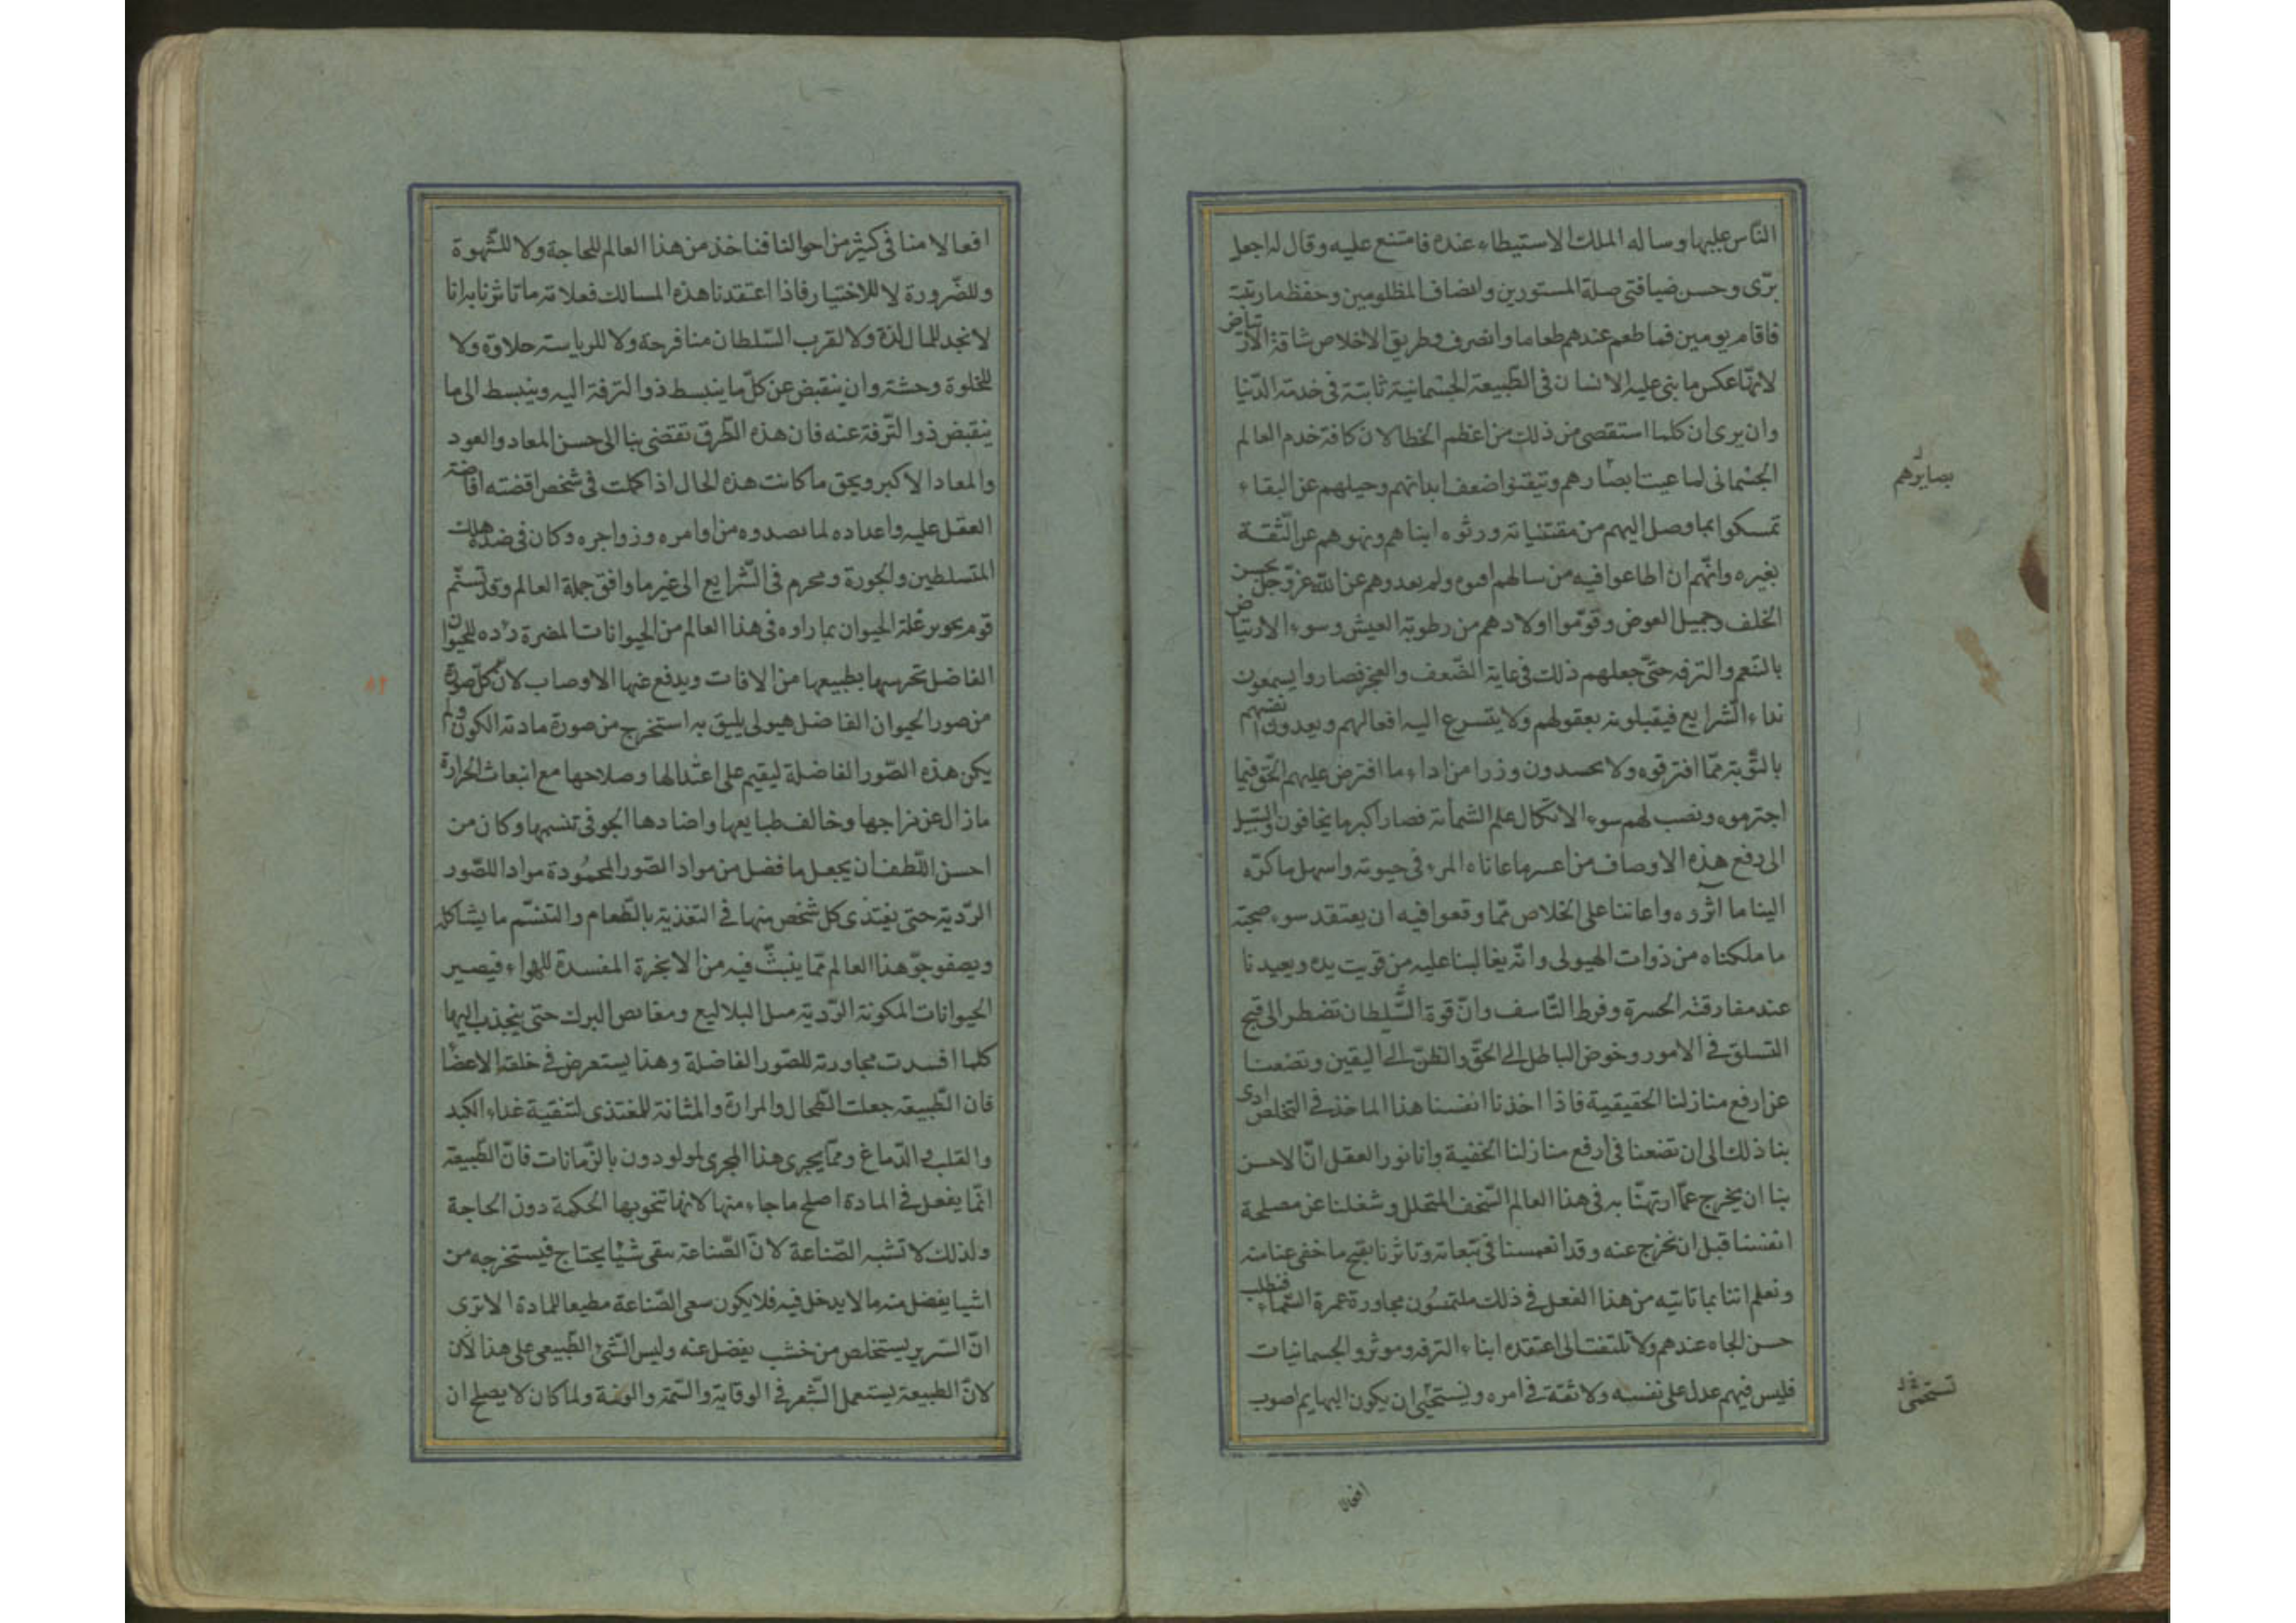 الناس عليها وساله الملك الاستيطاء عنده فامتنع عليه وقال له اجعل
برّى وحسن ضيافتى صلة المستورين وانصاف المظلومين وحفظ ما رتبته
فاقام يومين فما طعم عندهم طعاما وانصرف وطريق الاخلاص شاقة الارتياض
لانها عكس ما بنى عليه الانسان فى الطبيعة الجسمانية ثابتة فى خدمة الدنيا
وان يرى ان كلما استقصى من ذلك من اعظم الخطا لان كافة خدم العالم
الجسمانى لما عيت ابصارهم وتيقنوا ضعف ابدانهم وحيلهم عن البقاء
تمسكوا بما وصل اليهم من مقتنياته ورثوه ابناهم ونهوهم عن الثقة
بغيره وانهم ان اطاعوا فيه من سالهم ولم يعدوهم عن الله عز وجل بحسن
الخلف وجميل العوض وقوموا اولادهم من رطوبة العيش وسوء الارتياض
بالتنعم والترفه حتى جعلهم ذلك فى غاية الضعف والعجز فصاروا يسمعون
نداء الشرايع فيقبلونه بعقولهم ولا يتسرع اليه افعالهم ويعدون انفسهم
بالتوبة مما افترقوه ولا يحسدون وزرا من اداء ما افترض عليهم الحق فيما
اجترموه ونصب لهم سوء الاتكال علم الشماتة فصار اكبر ما يخافون والسبيل
الى دفع هذه الاوصاف من اعسر ما عاناه المرء فى حيوته واسهل ما كرّه
الينا ما اثروه واعاننا على الخلاص مما وقعوا فيه ان يعتقد سوء صحبة
ما ملكناه من ذوات الهيولى وانه يغالبنا عليه من قويت يده ويعيدنا
عند مفارقته الحسرة وفرط التاسف وان قوة السلطان تضطر الى قبح
التسلق فى الامور وخوض الباطل الى الحق والظن الى اليقين وتضعنا
عن ارفع منازلنا الحقيقية فاذا اخذنا انفسنا هذا الماخذ فى التخلص ادى
بنا ذلك الى ان تضعنا فى ارفع منازلنا الخفية وانا نور العقل ان الاحسن
بنا ان يخرج عما ارتهنا به فى هذا العالم السخف المتحلل وشغلنا عن مصلحة
انفسنا قبل ان نخرج عنه وقد انغمسنا فى تبعاته وتاثرنا بقبح ما خفى عنا منه
ونعلم اننا بما تاتيه من هذا الفعل فى ذلك ملتمسون مجاورة عمرة السماء فنطلب
حسن الجاه عندهم ولا نلتفت الى اعتقده ابناء الترفه وموثرو الجسمانيات
فليس فيهم عدل على نفسه ولا ثقة فى امره ونستحيى ان يكون البهايم اصوب
بصايرهم
نستحيى
افعالا
افعالا منا فى كثير من احوالنا فناخذ من هذا العالم للحاجة ولا للشهوة
وللضرورة لا للاختيار فاذا اعتقدنا هذه المسالك فعلامة ما تاثرنا به انا
لا نجد للمال لذة ولا لقرب السلطان منا فرحة ولا للرياسة حلاوة ولا
للخلوة وحشة وان ينقبض عن كل ما ينبسط ذو الترفة اليه وينبسط الى ما
ينقبض ذو الترفة عنه فان هذه الطرق تقضى بنا الى حسن المعاد والعود
والمعاد الاكبر ويحق ما كانت هذه الحال اذا كملت فى شخص اقضته افاضة
العقل عليه واعداده لما نصدوه من اوامره وزواجره وكان فى ضد هلك
المتسلطين والجورة ومحرم فى الشرايع الى غير ما وافق جملة العالم وقد تسنم
قوم بحو برغلة الحيوان بما راوه فى هذا العالم من الحيوانات المضرة للحيوان
الفاضل تحرسها بطبيعها من الافات ويدفع عنها الاوصاب لان كل صورة
من صور الحيوان الفاضل هيولى يليق به استخرج من صورة مادته الكون ولم
يكن هذه الصور الفاضلة ليقيم على اعتدالها وصلاحها مع انبعاث الحرارة
ما زال عن مزاجها وخالف طبايعها واضادها الجو فى تنسمها وكان من
احسن اللطف ان يجعل ما فضل من مواد الصور المحمودة موادا للصور
الردية حتى يغتذى كل شخص منها فى التغذية بالطعام والتنسم ما يشاكله
ويصفو جو هذا العالم مما ينبث فيه من الابخرة المفسدة للهواء فيصير
الحيوانات المكونة الردية مسل البلاليع ومغايص البرك حتى ينجذب اليها
كلما افسدت مجاورته للصور الفاضلة وهذا يستعرض فى خلقة الاعضا
فان الطبيعة جعلت الطحال والمرارة والمثانة للمغتذى لتنقية غذاء الكبد
والقلب والدماغ ومما يجرى هذا المجرى المولودون بالزمانات فان الطبيعة
انما يفعل فى المادة اصلح ما جاء منها لانها تنحو بها الحكمة دون الحاجة
ولذلك لا تشبه الصناعة لان الصناعة سقى شيا يحتاج فيستخرجه من
اشيا يفضل منه ما لا يدخل فيه فلا يكون سعى الصناعة مطيعا للمادة الا ترى
ان السرير يستخلص من خشب يفضل عنه وليس الشئ الطبيعى على هذا لان
لان الطبيعة يستعمل الشعر فى الوقاية والسمة والونة ولما كان لا يصلح ان